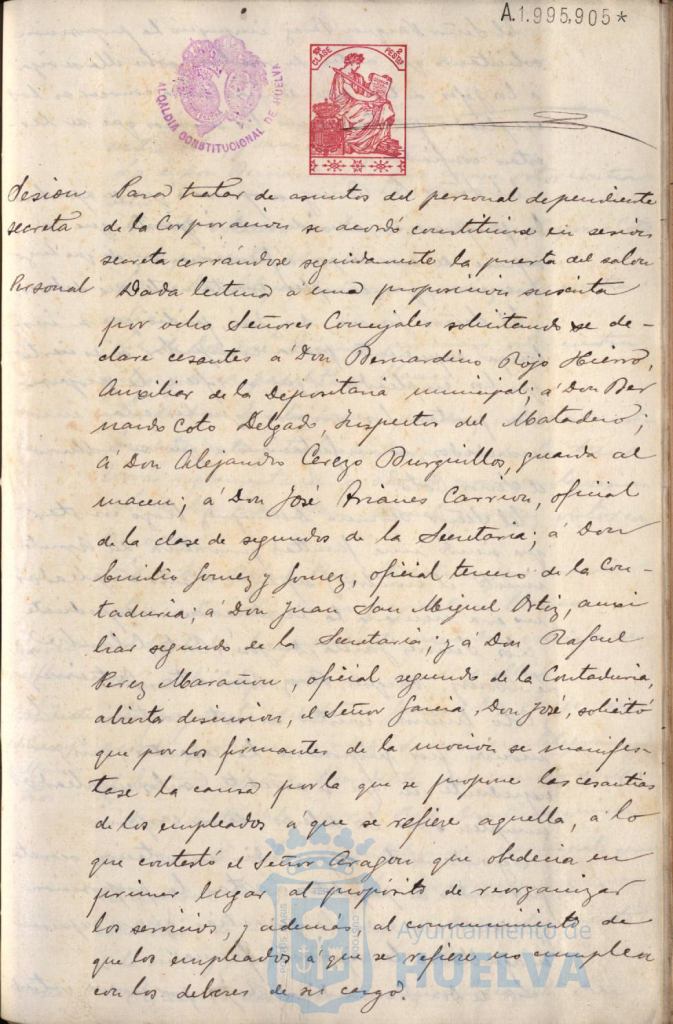 A.1.995,905*
ALCALDIA CONSTITUCIONAL DE HUELVA
CLASE
PESETAS
Sesion
secreta
Personal
Para tratar de asuntos del personal dependiente
de la Corporacion se acordó constituirse en sesion
secreta cerrándose seguidamente la puerta del salon
Dada lectura á una proposicion suscrita
por ocho Señores Concejales solicitando se de-
clare cesantes á Don Bernardino Rojo Hierro,
Auxiliar de la Depositaria municipal; á Don Ber
nardo Coto Delgado, Inspector del Matadero;
á Don Alejandro Cerezo Burguillos, guarda al
macen; á Don José Arianes Carrion, oficial
de la clase de segundos de la Secretaria; á Don
Emilio Gomez y Gomez, oficial tercero de la Con-
taduria; á Don Juan San Miguel Ortiz, auxi
liar segundo de la Secretaria; y á Don Rafael
Perez Marañon, oficial segundo de la Contaduria,
abierta discusion, el Señor Garcia, Don José, solicitó
que por los firmantes de la mocion se manifes-
tase la causa por la que se propone las cesantias
de los empleados á que se refiere aquella, á lo
que contestó el Señor Aragon que obedecia en
primer lugar al propósito de reorganizar
los servicios, y además, al convencimiento de
que los empleados á que se refiere no cumplen
con los deberes de su cargo.
Ayuntamiento de
HUELVA